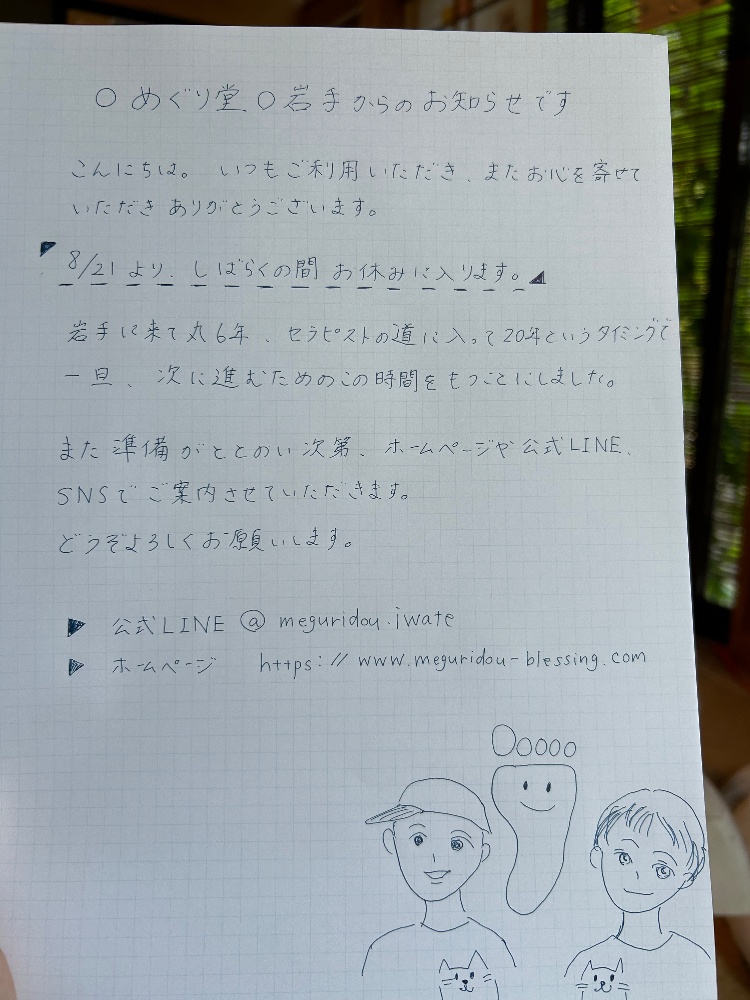 ○ めぐり堂 ○ 岩手からのお知らせです
こんにちは。 いつもご利用いただき、またお心を寄せて
いただき ありがとうございます。
8/21 より、しばらくの間 お休みに入ります。
岩手に来て丸6年、セラピストの道に入って20年というタイミングで
一旦、次に進むためのこの時間をもつことにしました。
また 準備がととのい次第、ホームページや公式LINE、
SNSで ご案内させていただきます。
どうぞよろしくお願いします。
▶ 公式LINE @ meguridou.iwate
▶ ホームページ https://www.meguridou-blessing.com